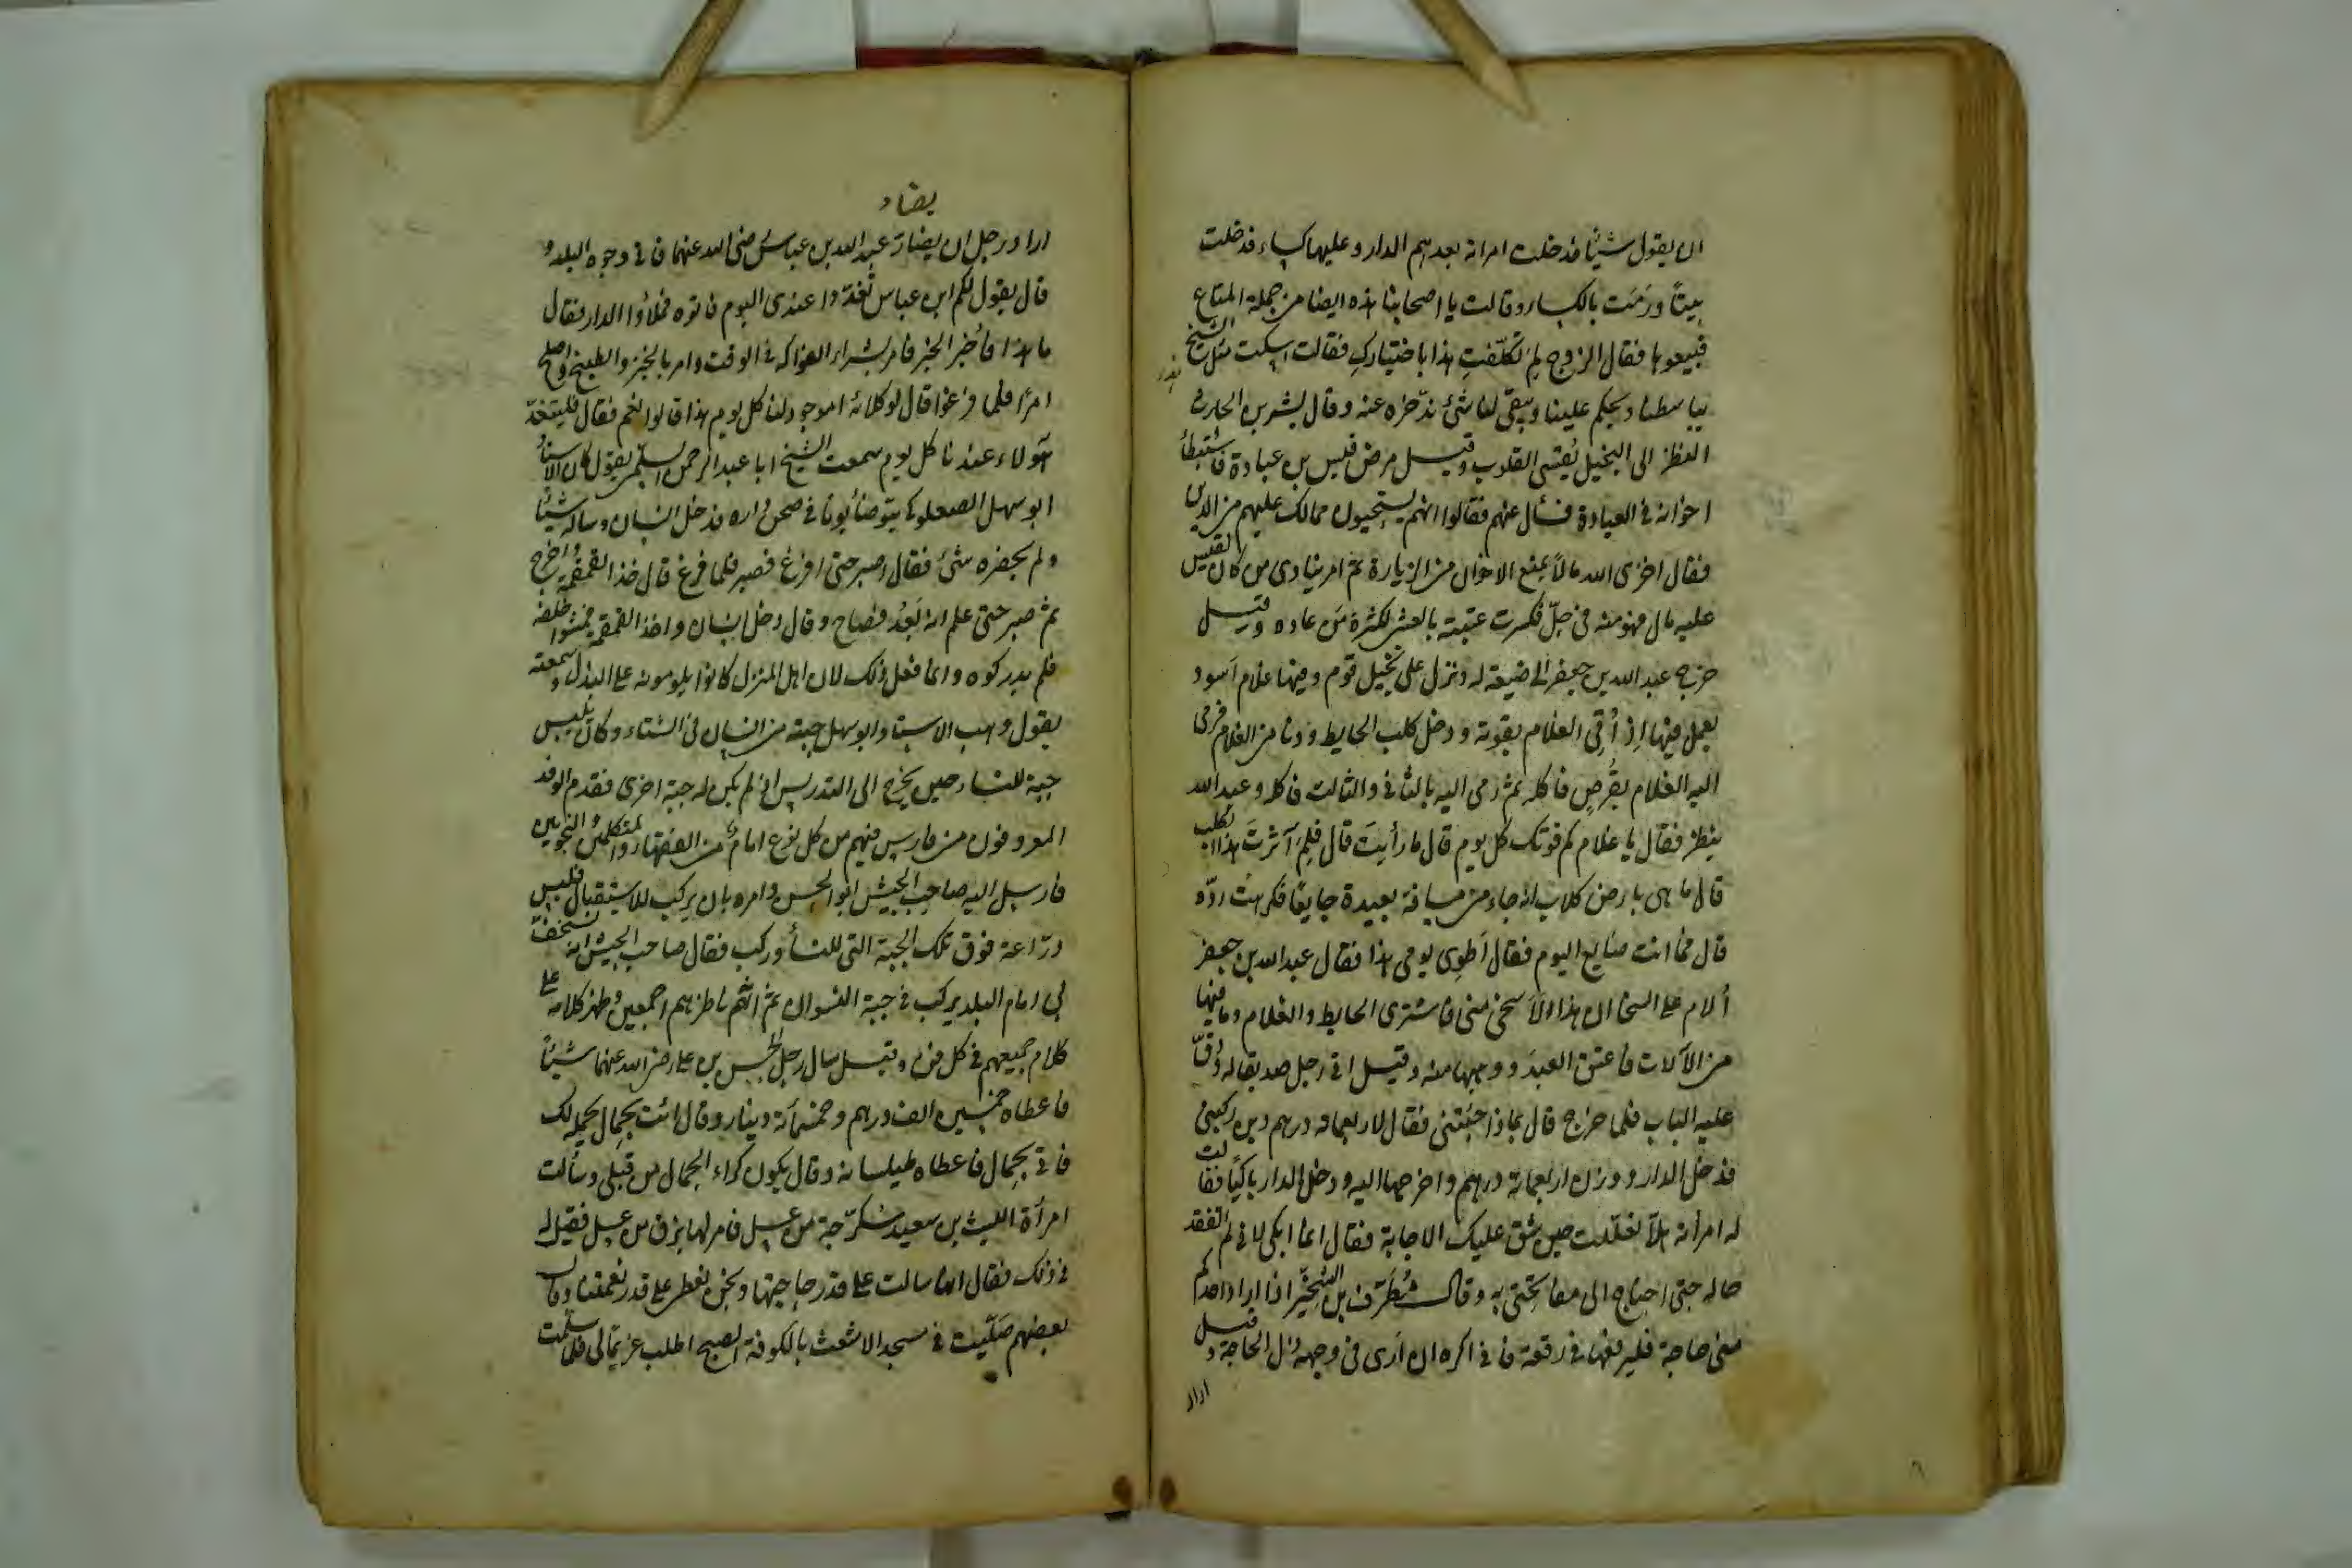 ان يقول شيئا فدخلت امراته بعدهم الدار وعليها كساء فدخلت
بيتا ورَمَت بالكساء وقالت يا اصحابنا هذه ايضا من جملة المتاع
فبيعوها فقال الزوج لِمَ تكلّفتِ هذا باختياركِ فقالت اسكت مثل الشيخ
يباسطنا ويحكم علينا ويبقى لنا شئ ندّخره عنه وقال بشر بن الحارث
النظر الى البخيل يُقسّى القلوب وقيل مرض قيس بن عبادة فاستبطأ
اخوانه فى العيادة فسأل عنهم فقالوا انهم يستحيون ممالك عليهم من الدين
فقال اخزى الله مالاً يمنع الاخوان من الزيارة ثم امر ينادى من كان لقيس
عليه مال فهو منه فى حِلّ فكسرت عتبته بالعشى لكثرة مَن عاده وقيل
خرج عبد الله بن جعفر الى ضيعة له ونزل على نخيل قوم وفيها غلام اسود
يعمل فيها اذ اُتى الغلام بقوته ودخل كلب الحايط ودنا من الغلام فرمى
اليه الغلام بقُرصٍ فاكله ثم رمى اليه بالثانى والثالث فاكله وعبد الله
ينظر فقال يا غلام كم قوتك كل يوم قال ما رأيتَ قال فلِمَ آثرتَ هذا الكلب
قال ما هى بارض كلاب انه جاء من مسافة بعيدة جايعًا فكرهتُ ردّه
قال فما انت صانع اليوم فقال اَطوِى يومى هذا فقال عبد الله بن جعفر
اُلام على السخا ان هذا لاَسخى منى فاشترى الحايط والغلام وما فيها
من الآلات فاعتق العبدَ ووهبها منه وقيل اتى رجل صديقا له ودُقّ
عليه الباب فلما خرج قال بماذا جئتنى فقال لاربعمائة درهم دين ركبنى
فدخل الدار ووزن اربعمائة درهم واخرجها اليه ودخل الدار باكيًا فقالت
له امرأته هلاّ تعللت حين شق عليك الاجابة فقال انما ابكى لانى لم اتفقد
حاله حتى احتاج الى مفاتحتى به وقال مُطَرّف بن الشِخّير اذا اراد احدكم
منى حاجة فليرفعها فى رقعة فانى اكره ان اَرى فى وجهه ذل الحاجة وقيل
اراد
يضاد
اراد رجل ان يضارّ عبد الله بن عباس رضى الله عنهما فاتى وجوه البلد و
قال يقول لكم ابن عباس تَغَدّوا عندى اليوم فاتوه فملاؤا الدار فقال
ما هذا فاُخبر الخبر فامر بشراء الفواكه فى الوقت وامر بالخبز والطبيخ واصلح
امرًا فلما فرغوا قال لوكلائه اموجود لنا كل يوم هذا قالوا نعم فقال فليتغدّ
هؤلاء عندنا كل يوم سمعت الشيخ ابا عبد الرحمن السلمى يقول كان الاستاذ
ابو سهل الصعلوكى يتوضأ يوما فى صحن داره فدخل انسان وساله شيئا
ولم يحضره شئ فقال اصبر حتى افرغ فصبر فلما فرغ قال خذ القمقمة واخرج
ثم صبر حتى علم انه بَعُدَ فصاح وقال دخل انسان واخذ القمقمة فمشوا خلفه
فلم يدركوه وانما فعل ذلك لان اهل المنزل كانوا يلومونه على البذل وسمعته
يقول وهب الاستاد ابو سهل جبته من انسان فى الشتاء وكان يلبس
جبة للنساء حين يخرج الى التدريس اذ لم يكن له جبة اخرى فقدم الوفد
المعروفون من فارس فيهم من كل نوع امام من الفقهاء والمتكلمين والنحويين
فارسل اليه صاحب الجيش ابو الحسن وامره بان يركب للاستقبال فلبس
درّاعة فوق تلك الجبة التى للنسأ وركب فقال صاحب الجيش انه يستخفّ
بى امام البلد يركب فى جبة النسوان ثم انه ناظرهم اجمعين وظهر كلامه على
كلام جميعهم فى كل فن وقيل سال رجل الحسن بن على رضى الله عنهما شيئاً
فاعطاه خمسين الف درهم وخمسمائة دينار وقال ائت بجمال يحمله لك
فاتى بجمال فاعطاه طيلسانه وقال يكون كراء الجمال من قبلى وسألت
امرأة الليث بن سعيد سُكرّجة من عسل فامر لها بزق من عسل فقيل له
فى ذلك فقال انها سالت على قدر حاجتها ونحن نعطى على قدر نعمتنا وقال
بعضهم صَلّيت فى مسجد الاشعث بالكوفة الصبح اطلب غريمًا لى فلما سلّمت